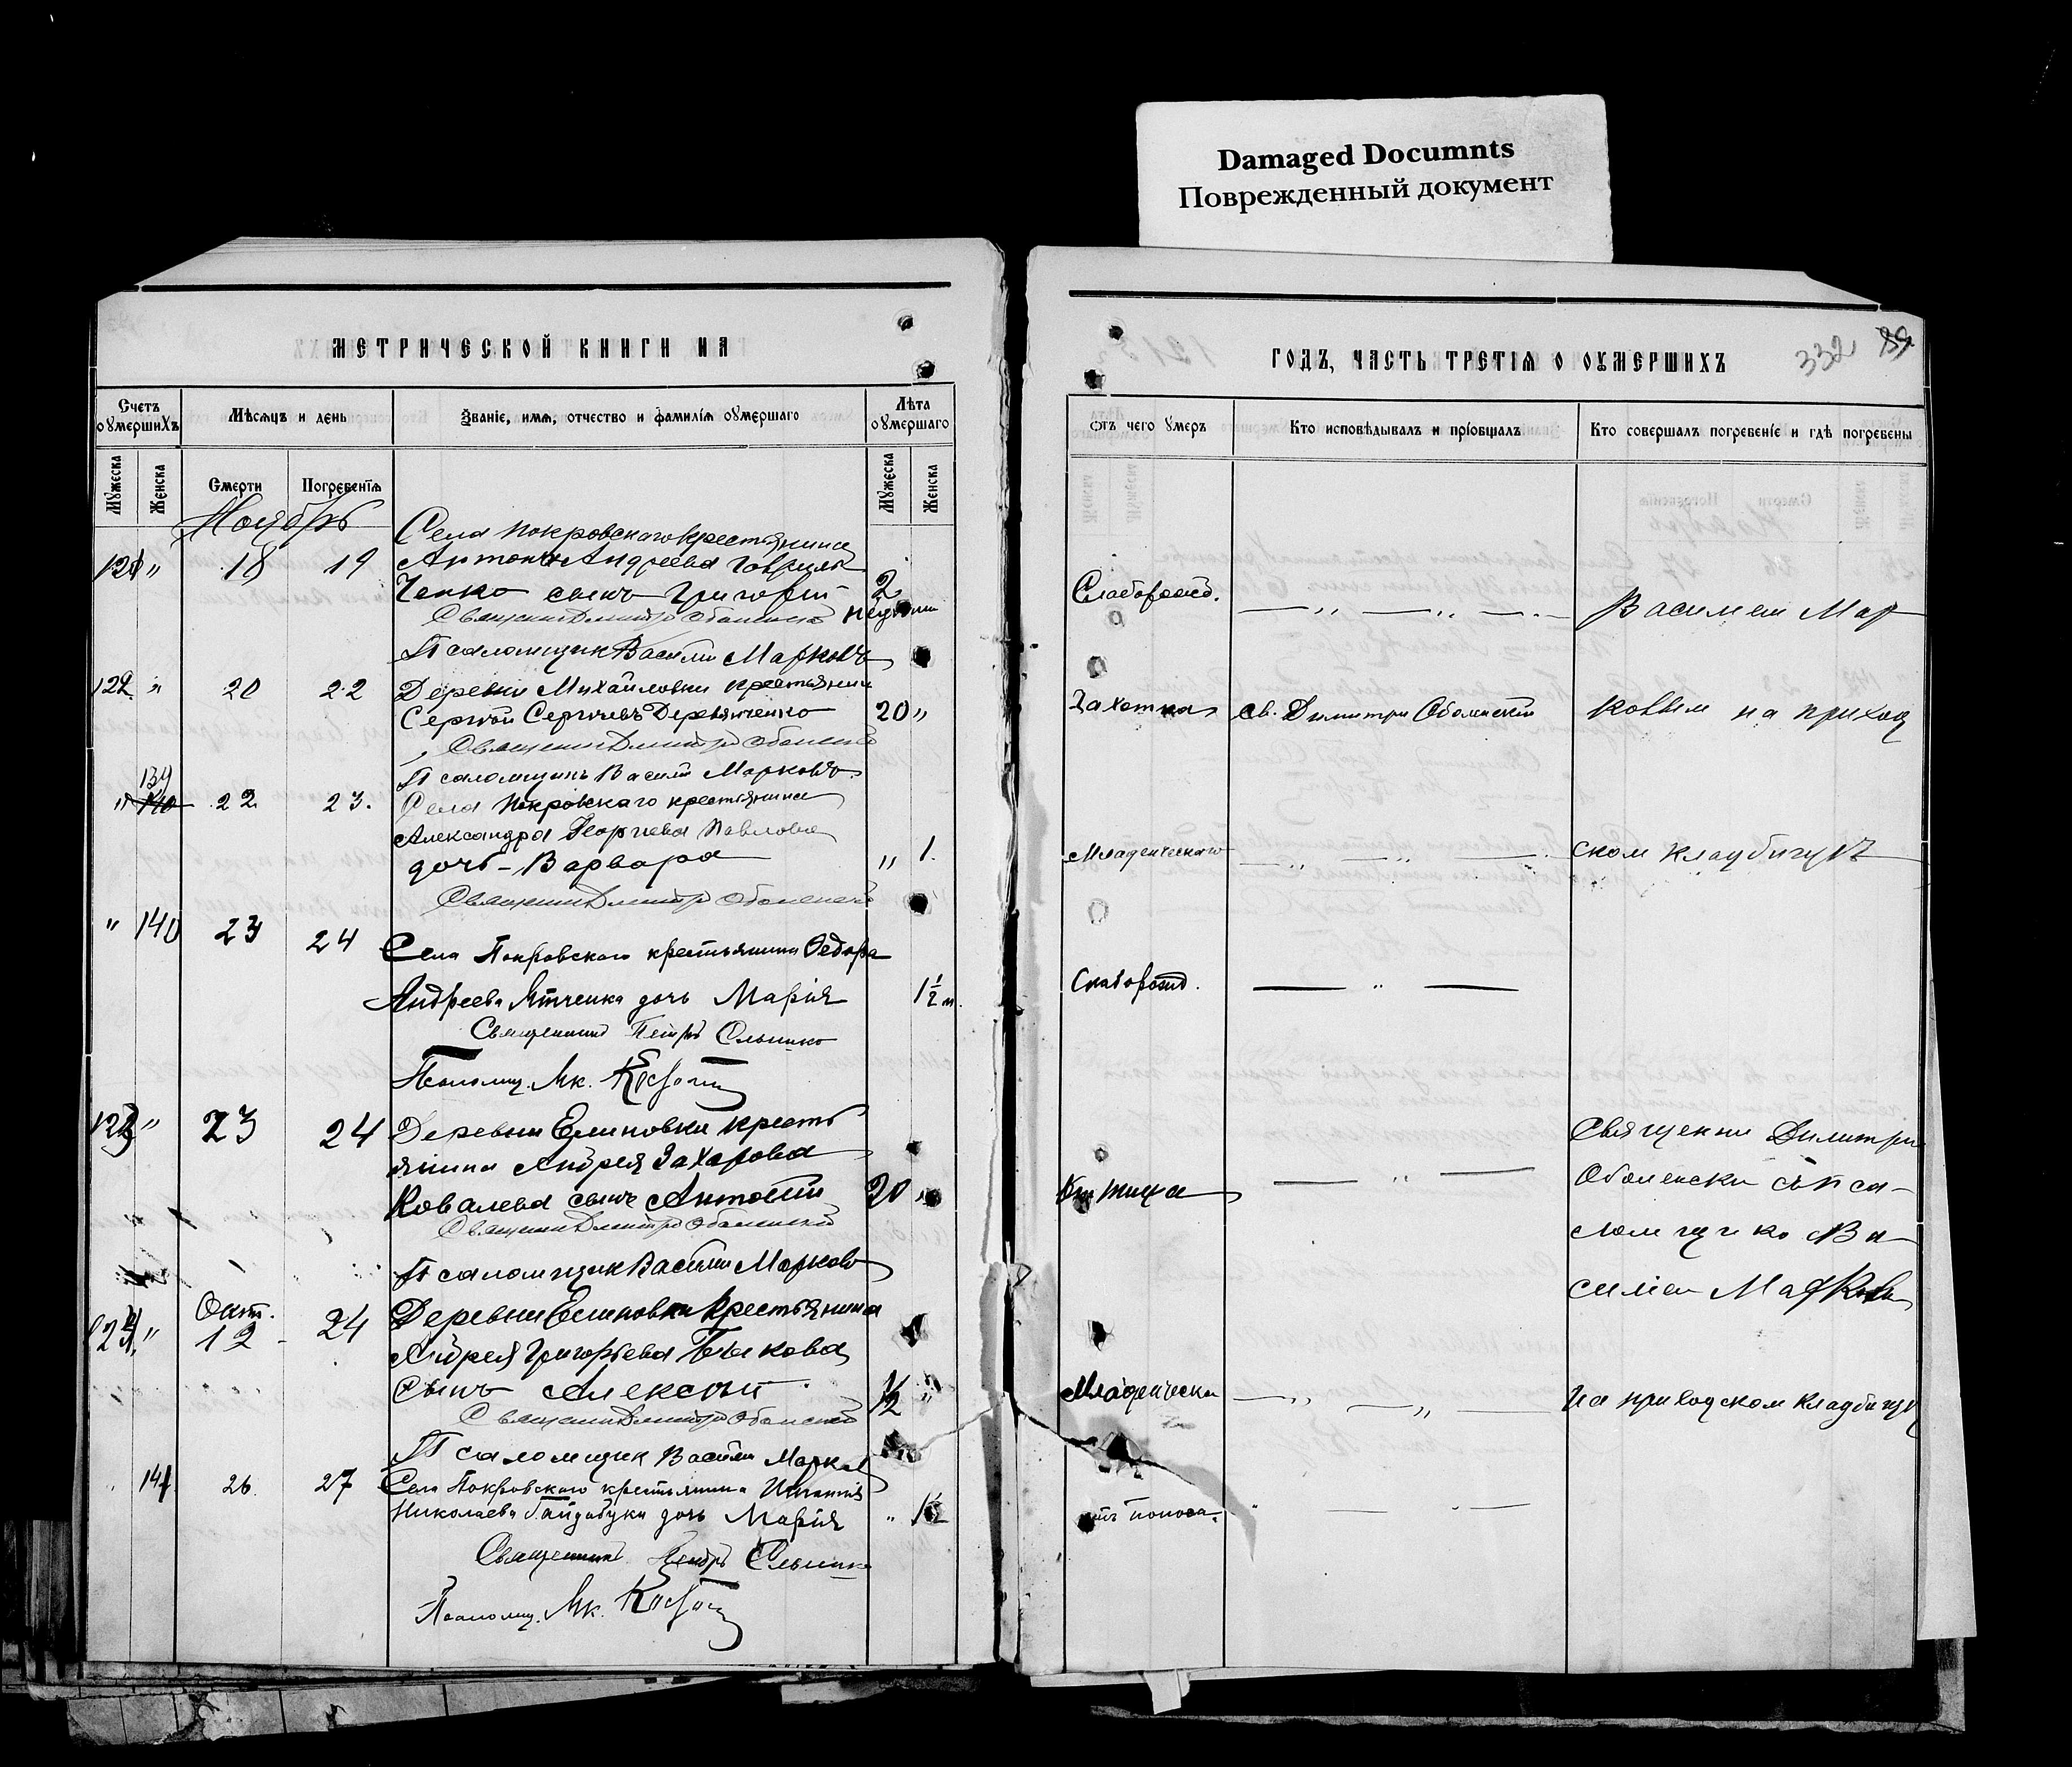 Damaged Documnts
Поврежденный документ
МЕТРИЧЕСКОЙ КНИГИ НА
Счетъ оумершихъ
Мѣсяцъ и день
Званіе, имя, отчество и фамилія оумершаго
Лѣта оумершаго
Мужеска
Женска
Смерти
Погребенія
Мужеска
Женска
Ноябрь
Села Покровскаго крестьянина
121 " 18 19 Антона Андреева Гаврили
ченко сынъ Григорій 2
Священникъ Димитрій Оболенскій недѣли
Псаломщик Василій Марковъ
122 " 20 22 Деревни Михайловки крестьянин
Сергѣй Сергѣевъ Деревянченко 20 "
Священникъ Димитрій Оболенскій
Псаломщикъ Василій Марковъ
139
" 140 22 23. Села Покровскаго крестьянина
Александра Георгиева Павлова
дочь - Варвара " 1.
Священникъ Димитрій Оболенскій
" 140 23 24 Села Покровскаго крестьянина Федора
Андреева дочь Марія 1 1/2 м.
Священникъ Петръ
Псаломщ.
123 " 23 24 Деревни Елиновки кресть
янина Андрея Захарова
Ковалева сынъ Антоній 20 "
Священникъ Димитрій Оболенскій
Псаломщик Василій Марковъ
Окт.
124 " 12 - 24 Деревни Елиновки крестьянина
Андрея Григорьева Быкова
сынъ Алексѣй 1/2 "
Священникъ Димитрій Оболенскій
Псаломщик Василій Марков
141 26. 27 Села Покровскаго крестьянина Игнатія
Николаева дочь Марія " 1 1/2
Священникъ Петръ
Псаломщ.
ГОДЪ, ЧАСТЬ ТРЕТІЯ О ОУМЕРШИХЪ
332
отъ чего умеръ
Кто исповѣдывалъ и пріобщалъ
Кто совершалъ погребеніе и гдѣ погребены
Слаборожд. — " — " — Василіем Мар
Чахотка св. Димитрій Оболенскій ковым на приход
Младенческаго — " — " — ском кладбищѣ
Слаборожд. — " —
Священник Димитрій
— " — Оболенски съ пса-
ломщико Ва
силіем Марковы
Младенческа — " — " — на приходском кладбищѣ
отъ поноса. " — " —